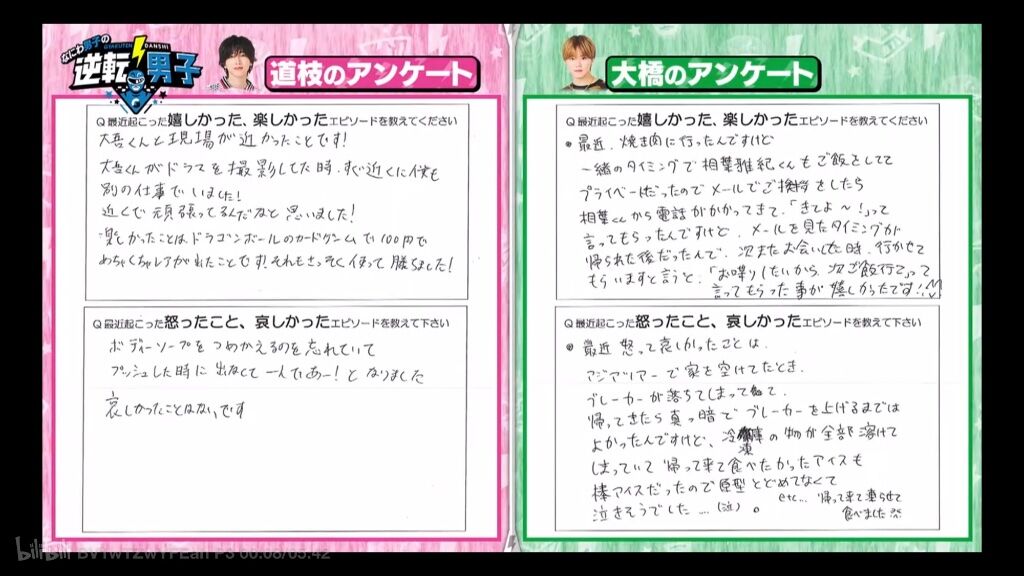 なにわ男子の
逆転男子
GYAKUTEN DANSHI
道枝のアンケート
Q 最近起こった嬉しかった、楽しかったエピソードを教えてください
大吾くんと現場が近かったことです!
大吾くんがドラマを撮影してた時、すぐ近くに僕も
別の仕事でいました!
近くで頑張ってるんだなと思いました!
楽しかったことはドラゴンボールのカードゲームで100円で
めちゃくちゃレアが出たことです!それもさっそく使って勝ちました!
Q 最近起こった怒ったこと、哀しかったエピソードを教えて下さい
ボディーソープをつめかえるのを忘れていて
プッシュした時に出なくて一人であー!となりました
哀しかったことはないです
大橋のアンケート
Q 最近起こった嬉しかった、楽しかったエピソードを教えてください
最近、焼き肉に行ったんですけど
一緒のタイミングで相葉雅紀くんもご飯をしてて
プライベートだったのでメールでご挨拶をしたら
相葉くんから電話がかかってきて、「きてよ〜!」って
言ってもらったんですけど、メールを見たタイミングが
帰られた後だったんで、次またお会いした時、行かせて
もらいますと言うと、「お喋りしたいから、次ご飯行こ」って
言ってもらった事が嬉しかったです!!
Q 最近起こった怒ったこと、哀しかったエピソードを教えて下さい
最近 怒って哀しかったことは、
アジアツアーで家を空けてたとき、
ブレーカーが落ちてしまってて、
帰ってきたら真っ暗でブレーカーを上げるまでは
よかったんですけど、冷凍庫の物が全部溶けて
しまっていて帰って来て食べたかったアイスも
棒アイスだったので原型とどめてなくて
泣きそうでした…(泣)。
etc... 帰って来て凍らせて
食べました
bilibili